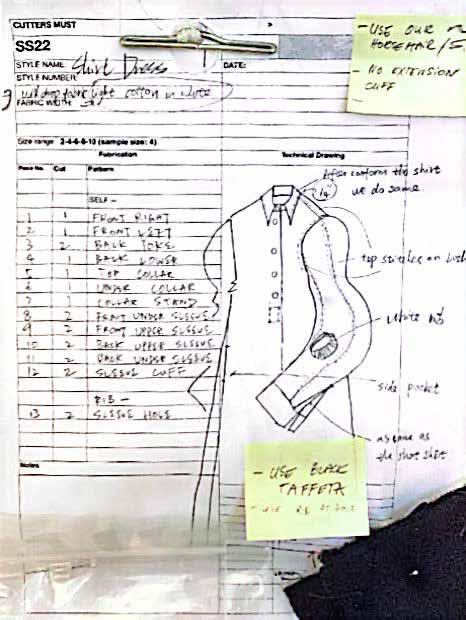 CUTTERS MUST
SS22
STYLE NAME: Shirt Dress
DATE:
STYLE NUMBER:
light cotton in white
FABRIC WIDTH
Size range 2-4-6-8-10 (sample size: 4)
Fabrication
Technical Drawing
Piece No. Cut Pattern
SELF -
1 1 FRONT RIGHT
2 1 FRONT LEFT
3 2 BACK YOKE
4 1 BACK LOWER
5 1 TOP COLLAR
6 1 UNDER COLLAR
7 COLLAR STAND
8 2 FRONT UNDER SLEEVE
9 2 FRONT UPPER SLEEVE
10 2 BACK UPPER SLEEVE
11 2 BACK UNDER SLEEVE
12 2 SLEEVE CUFF
RIB -
13 2 SLEEVE HOLE
Notes
- USE OUR
HORSEHAIR/
- NO EXTENSION
CUFF
After conform the shirt
we do same.
1/4"
top stitches on
white
side pocket
as same as
the short shirt
- USE BLACK
TAFFETA
- USE